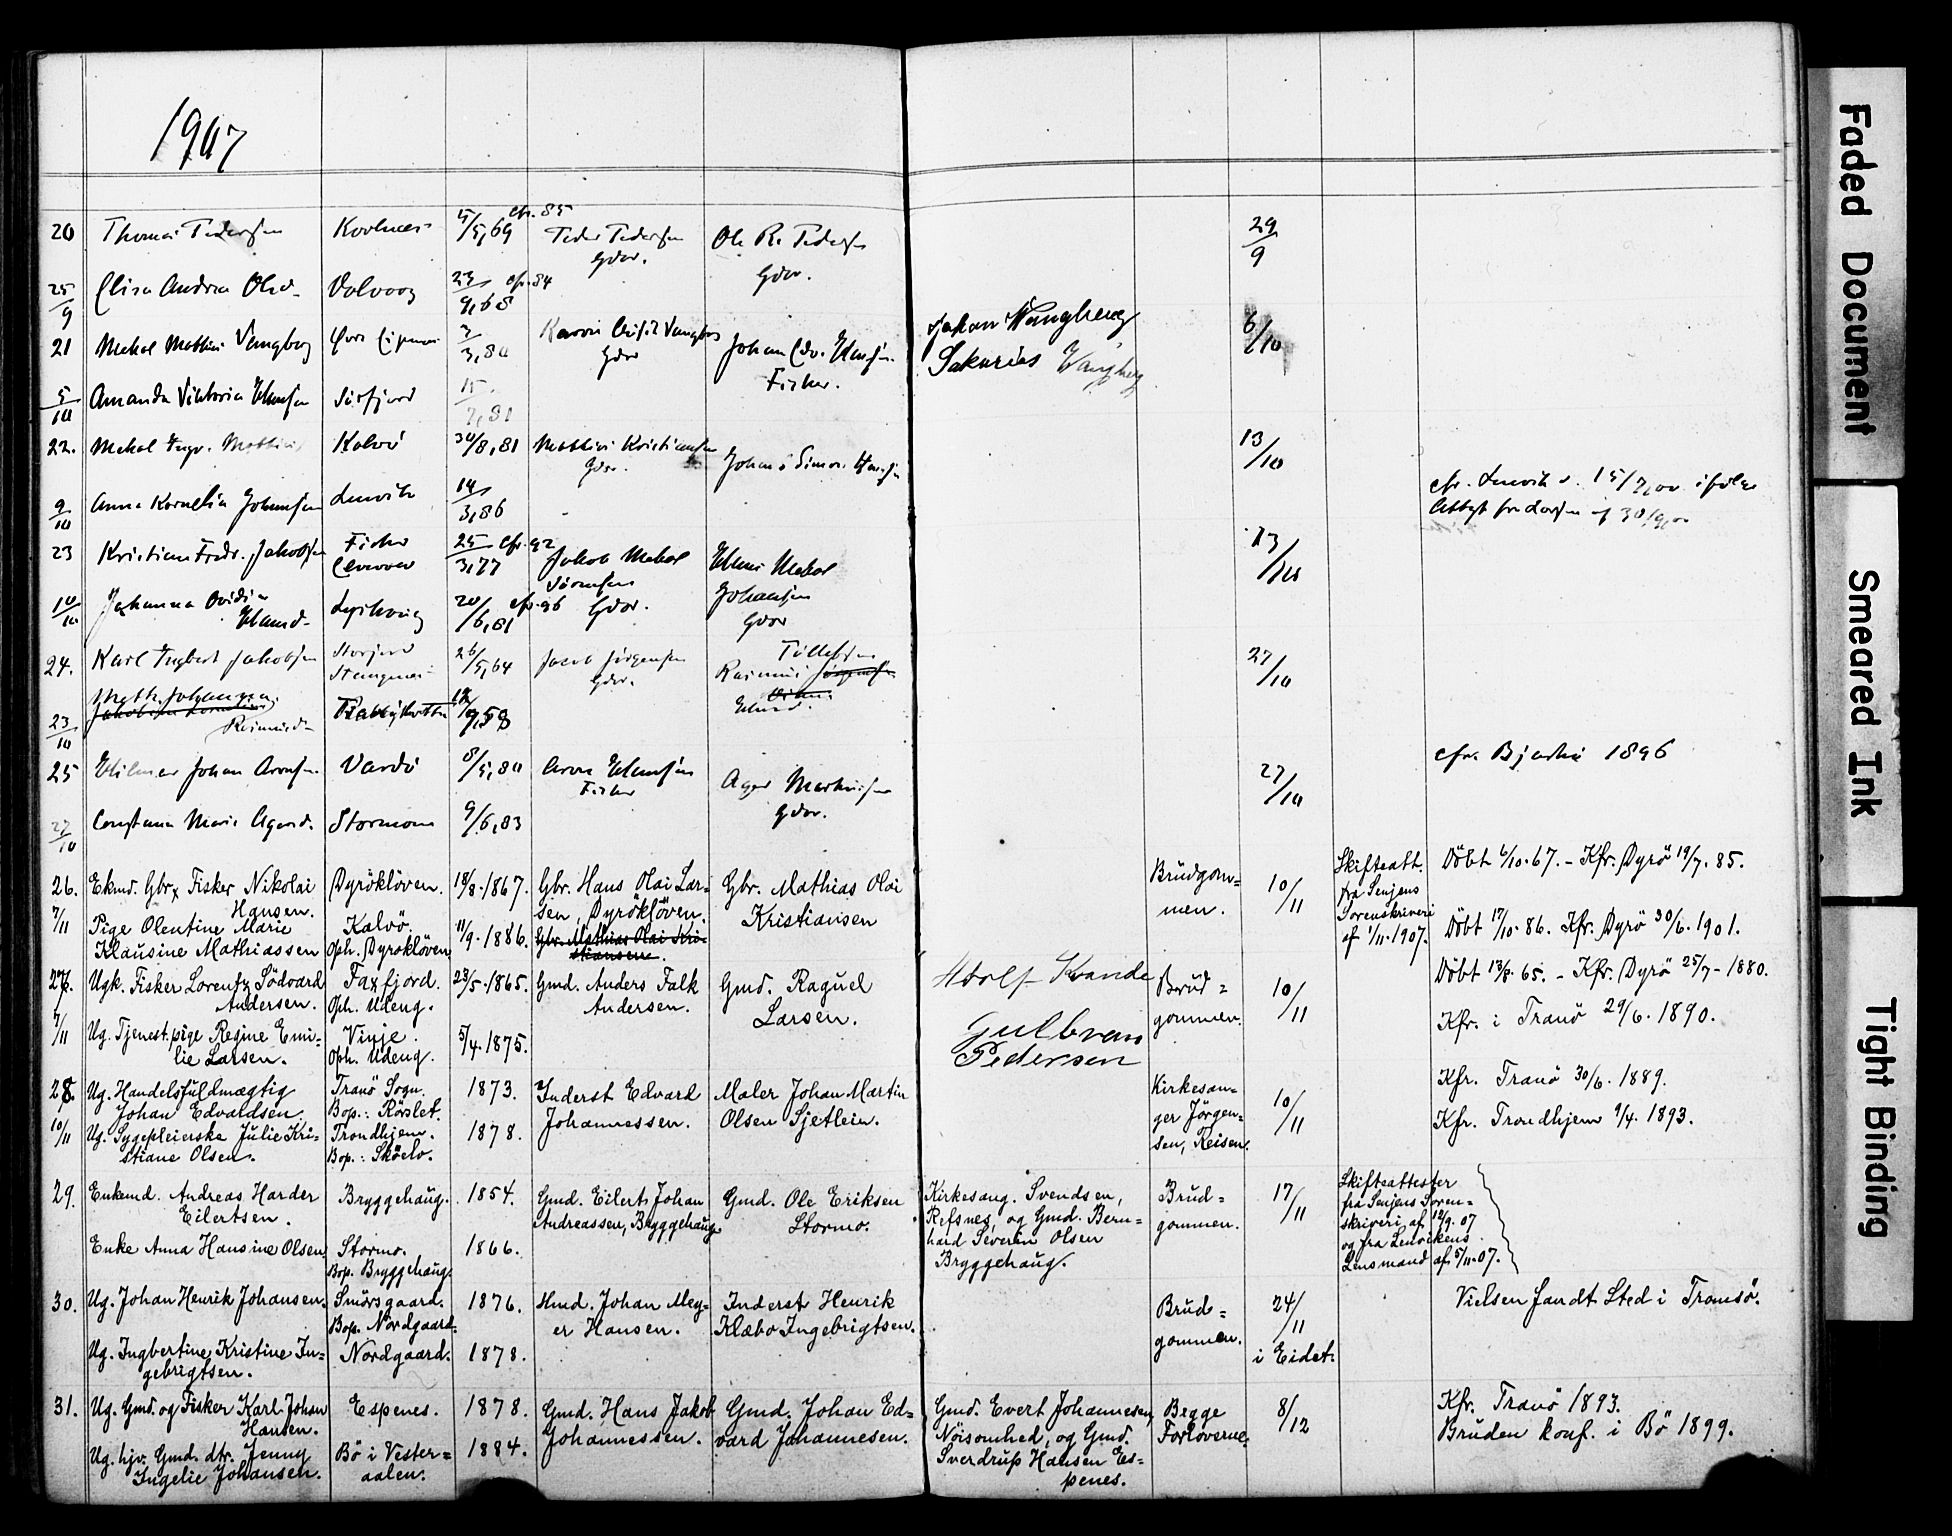 1907
20 Thomas Pedersen
5/5,69 cfr. 85
Peder Pedersen
Gdbr.
Ole R. Pedersen
Gdbr.
29/9
25/9 Elisa Andrea
23/9,68 cfr. 84
21 Mekal Mathias Vangberg
3,80
Gdbr
Johan Edv. Hansen
Fisker.
Johan Wangberg
Sakarias Vangberg
6/10
5/10 Amanda Viktoria Hansen
Sörfjord
15/7,81
22. Mekal Ingv. Mathias
Kalvö
30/8,81
Mathias Kristiansen
Gdbr.
Johan Simon Hansen
13/10
9/10 Anna Kornelia Johansen
Lenvik
14/3,86
cfr. Lenvik
23 Kristian Fredr. Jakobsen
Fisker
25/3,77 cfr. 92
Jakob Mekal
Sörensen
Gdbr.
Hans Mekal
Johansen
Gdbr
13/10
10/10 Johanna Ovidia
Hansd.
20/6,81 cfr. 96
24. Karl Ingbert Jakobsen
26/5,64
Jacob Jörgensen
Gdbr.
Rasmus
Tollefsen
27/10
23/10
Rasmusd.
12/9,58
25 Hilmer Johan Aronsen
Vardö
8/5,80
Aron Hansen
Fisker
Ager Markusen
Gdbr.
27/10
cfr. Bjarkö 1896
27/10 Constance Marie Agersd.
Stormoen
9/6,83
26. Ekmd. Gbr. Fisker Nikolai
Hansen.
Dyröklöven.
18/8.1867.
Gbr. Hans Olai Lar-
sen, Dyröklöven.
Gbr. Mathias Olai
Kristiansen
Brudgom-
men.
10/11
Skifteatt.
fra Senjens
Sorenskriveri
af 1/11.1907.
Döbt 6/10.67. - Kfr. Dyrö 19/7. 85.
7/11 Pige Olentine Marie
Klausine Mathiassen
Kalvö.
Oph. Dyröklöven
11/9.1886.
Gbr. Mathias Olai Kri-
stiansen.
Döbt 17/10.86. Kfr. Dyrö 30/6.1901.
27. Ugk. Fisker Lorentz Södvard
Andersen.
Faxfjord.
Oph. Udeng.
23/5.1865.
Gmd. Anders Falk
Andersen.
Gmd. Raguel
Larsen.
Adolf Kvande
Gulbran
Pedersen
Brud-
gommen.
10/11
Döbt 13/8. 65. - Kfr. Dyrö 25/7 - 1880.
7/11 Ug. Tjenest.pige Regine Emi-
lie Larsen.
Vinje.
Oph. Udeng.
5/4.1875.
Kfr. i Tranö 29/6. 1890.
28. Ug. Handelsfuldmægtig
Johan Edvardsen
Tranö Sogn.
Bop.: Rörslet.
1873.
Inderst Edvard
Johannessen.
Maler Johan Martin
Olsen Sjetlein.
Kirkesan-
ger Jörgen-
sen, Reisen.
10/11
Kfr. Tranö 30/6. 1889.
10/11 Ug. Sygepleierske Julie Kri-
stiane Olsen.
Trondhjem.
Bop.: Sköelv.
1878.
Kfr. Trondhjem 9/4. 1893.
29. Enkemd. Andreas Harder
Eilertsen.
Bryggehaug.
1854.
Gmd. Eilert Johan
Andreassen, Bryggehaug.
Gmd. Ole Eriksen
Stormo.
Kirkesang. Svendsen,
Refsnes, og Gmd. Bern-
hard Severin Olsen
Bryggehaug.
Brud-
gommen.
17/11
Skifteattester
fra Senjens Soren-
skriveri af 12/9.07
og fra Lenvikens
Lensmand af 5/11.07.
Enke Anna Hansine Olsen
Stormo.
Bop. Bryggehaug.
1866.
30. Ug. Johan Henrik Johansen.
Smörsgaard.
Bop. Nordgaard.
1876.
Hmd. Johan Mey-
er Hansen.
Inderst Henrik
Klæbo Ingebrigtsen.
Brud-
gommen.
24/11
i Eidet.
Vielsen fandt Sted i Tromsö.
Ug. Ingbertine Kristine In-
gebrigtsen.
Nordgaard.
1878.
31. Ug. Gmd. og Fisker Karl Johan
Hansen.
Espenes.
1878.
Gmd. Hans Jakob
Johannessen.
Gmd. Johan Ed-
vard Johannesen.
Gmd. Evert Johannesen,
Nöisomhed, og Gmd.
Sverdrup Hansen Es-
penes.
Begge
Forloverne.
8/12
Kfr. Tranö 1893.
Bruden konf. i Bö 1899.
Ug. hjv. Gmd. dtr. Jenny
Ingelie Johansen.
Bö i Vester-
aalen.
1884.
Faded Document
Smeared Ink
Tight Binding